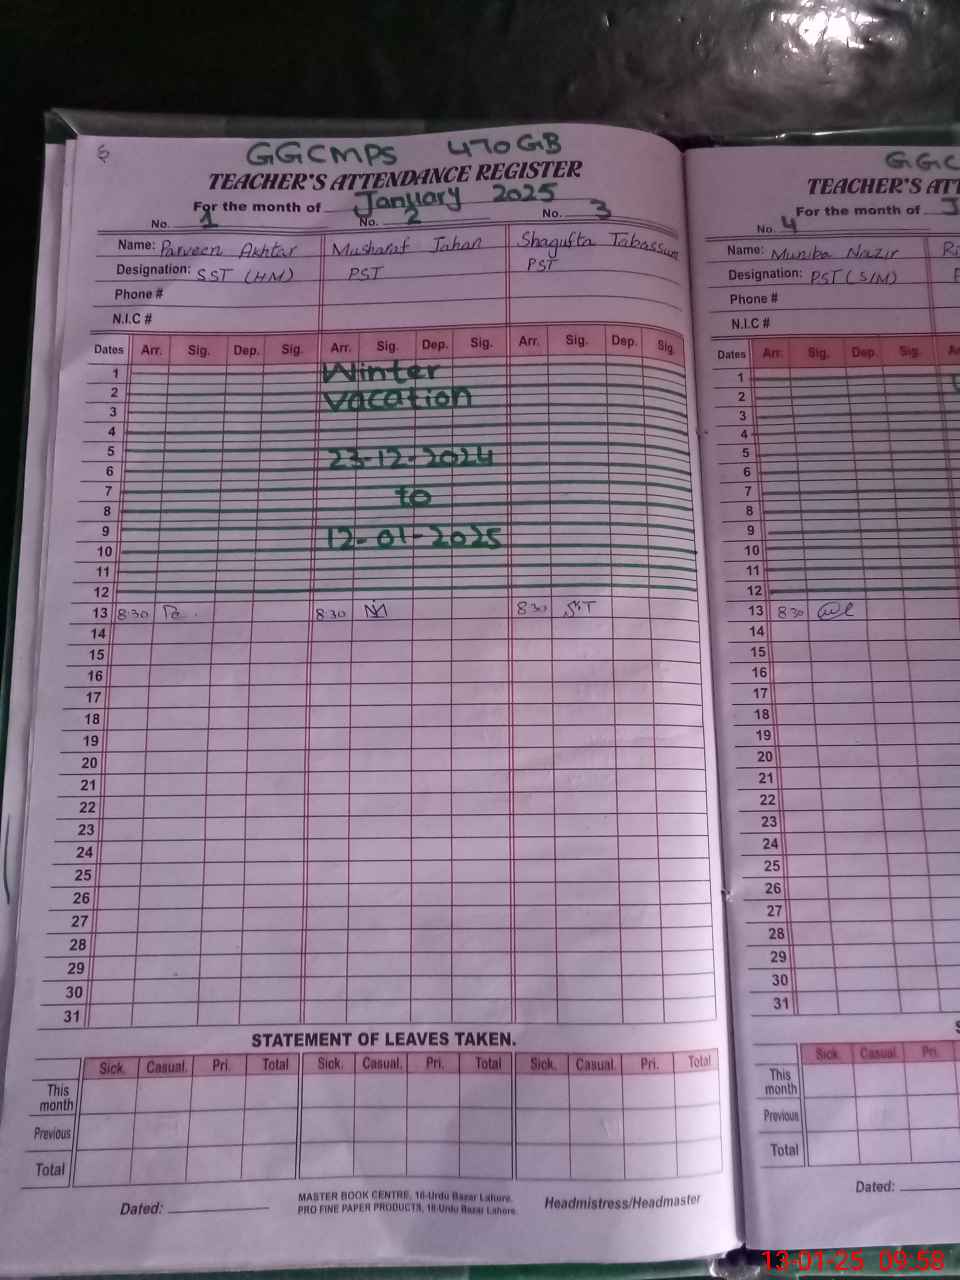 GGCMPS 470 GB
TEACHER'S ATTENDANCE REGISTER
For the month of January 2025
No. 1 No. 2 No. 3
Name: Parveen Akhtar Musharaf Jahan Shagufta Tabassum
Designation: SST (HM) PST PST
Phone #
N.I.C #
Dates Arr. Sig. Dep. Sig. Arr. Sig. Dep. Sig. Arr. Sig. Dep. Sig.
1 Winter
2 vacation
3
4
5 23-12-2024
6
7 to
8
9 12-01-2025
10
11
12
13 8:30 8:30 8:30 SST
14
15
16
17
18
19
20
21
22
23
24
25
26
27
28
29
30
31
STATEMENT OF LEAVES TAKEN.
Sick. Casual. Pri. Total Sick. Casual. Pri. Total Sick. Casual. Pri. Total
This month
Previous
Total
Dated:
MASTER BOOK CENTRE, 16-Urdu Bazar Lahore.
PRO FINE PAPER PRODUCTS, 16-Urdu Bazar Lahore.
Headmistress/Headmaster
GGC
TEACHER'S ATT
For the month of J
No. 4
Name: Muniba Nazir Ri
Designation: PST (S/M) P
Phone #
N.I.C #
Dates Arr. Sig. Dep. Sig. Ar
1
2
3
4
5
6
7
8
9
10
11
12
13 8:30
14
15
16
17
18
19
20
21
22
23
24
25
26
27
28
29
30
31
S
Sick. Casual. Pri.
This month
Previous
Total
Dated:
13-01-25 09:58